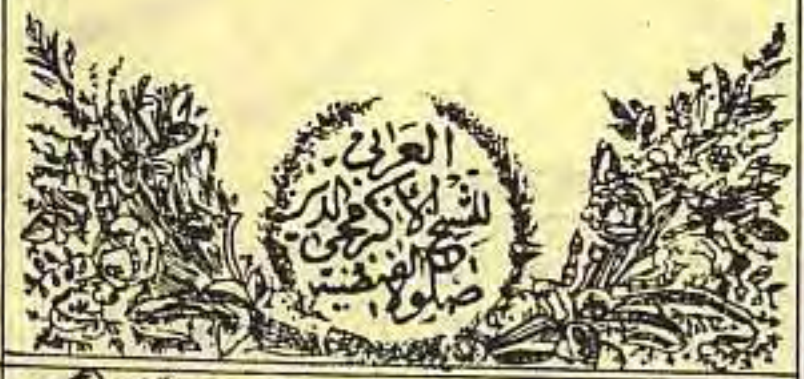 صلوة الفيضية
للشيخ الأكبر محي الدين
العربي